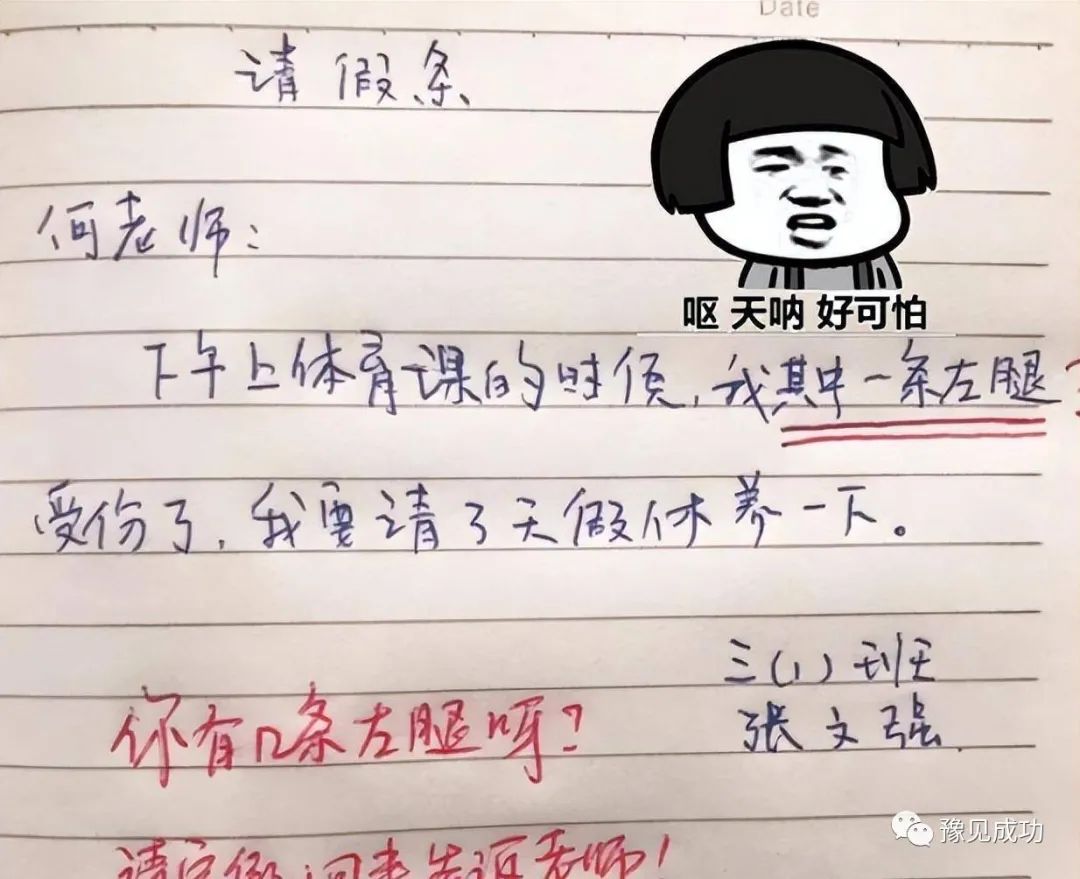 Date
请假条
何老师：
呕 天呐 好可怕
下午上体育课的时候，我其中一条左腿？
受伤了，我要请3天假休养一下。
三（1）班
张文强
你有几条左腿呀？
请完假回来告诉老师！
豫见成功